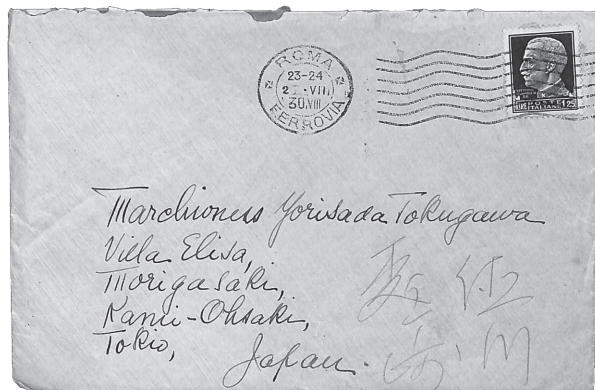 ROMA
23-24
VII
30.VIII
FERROVIA
POSTE
ITALIANE
1,25
Marchioness Yorisada Tokugawa
Villa Elisa,
Morigasaki,
Kami-Ohsaki,
Tokio,
Japan.